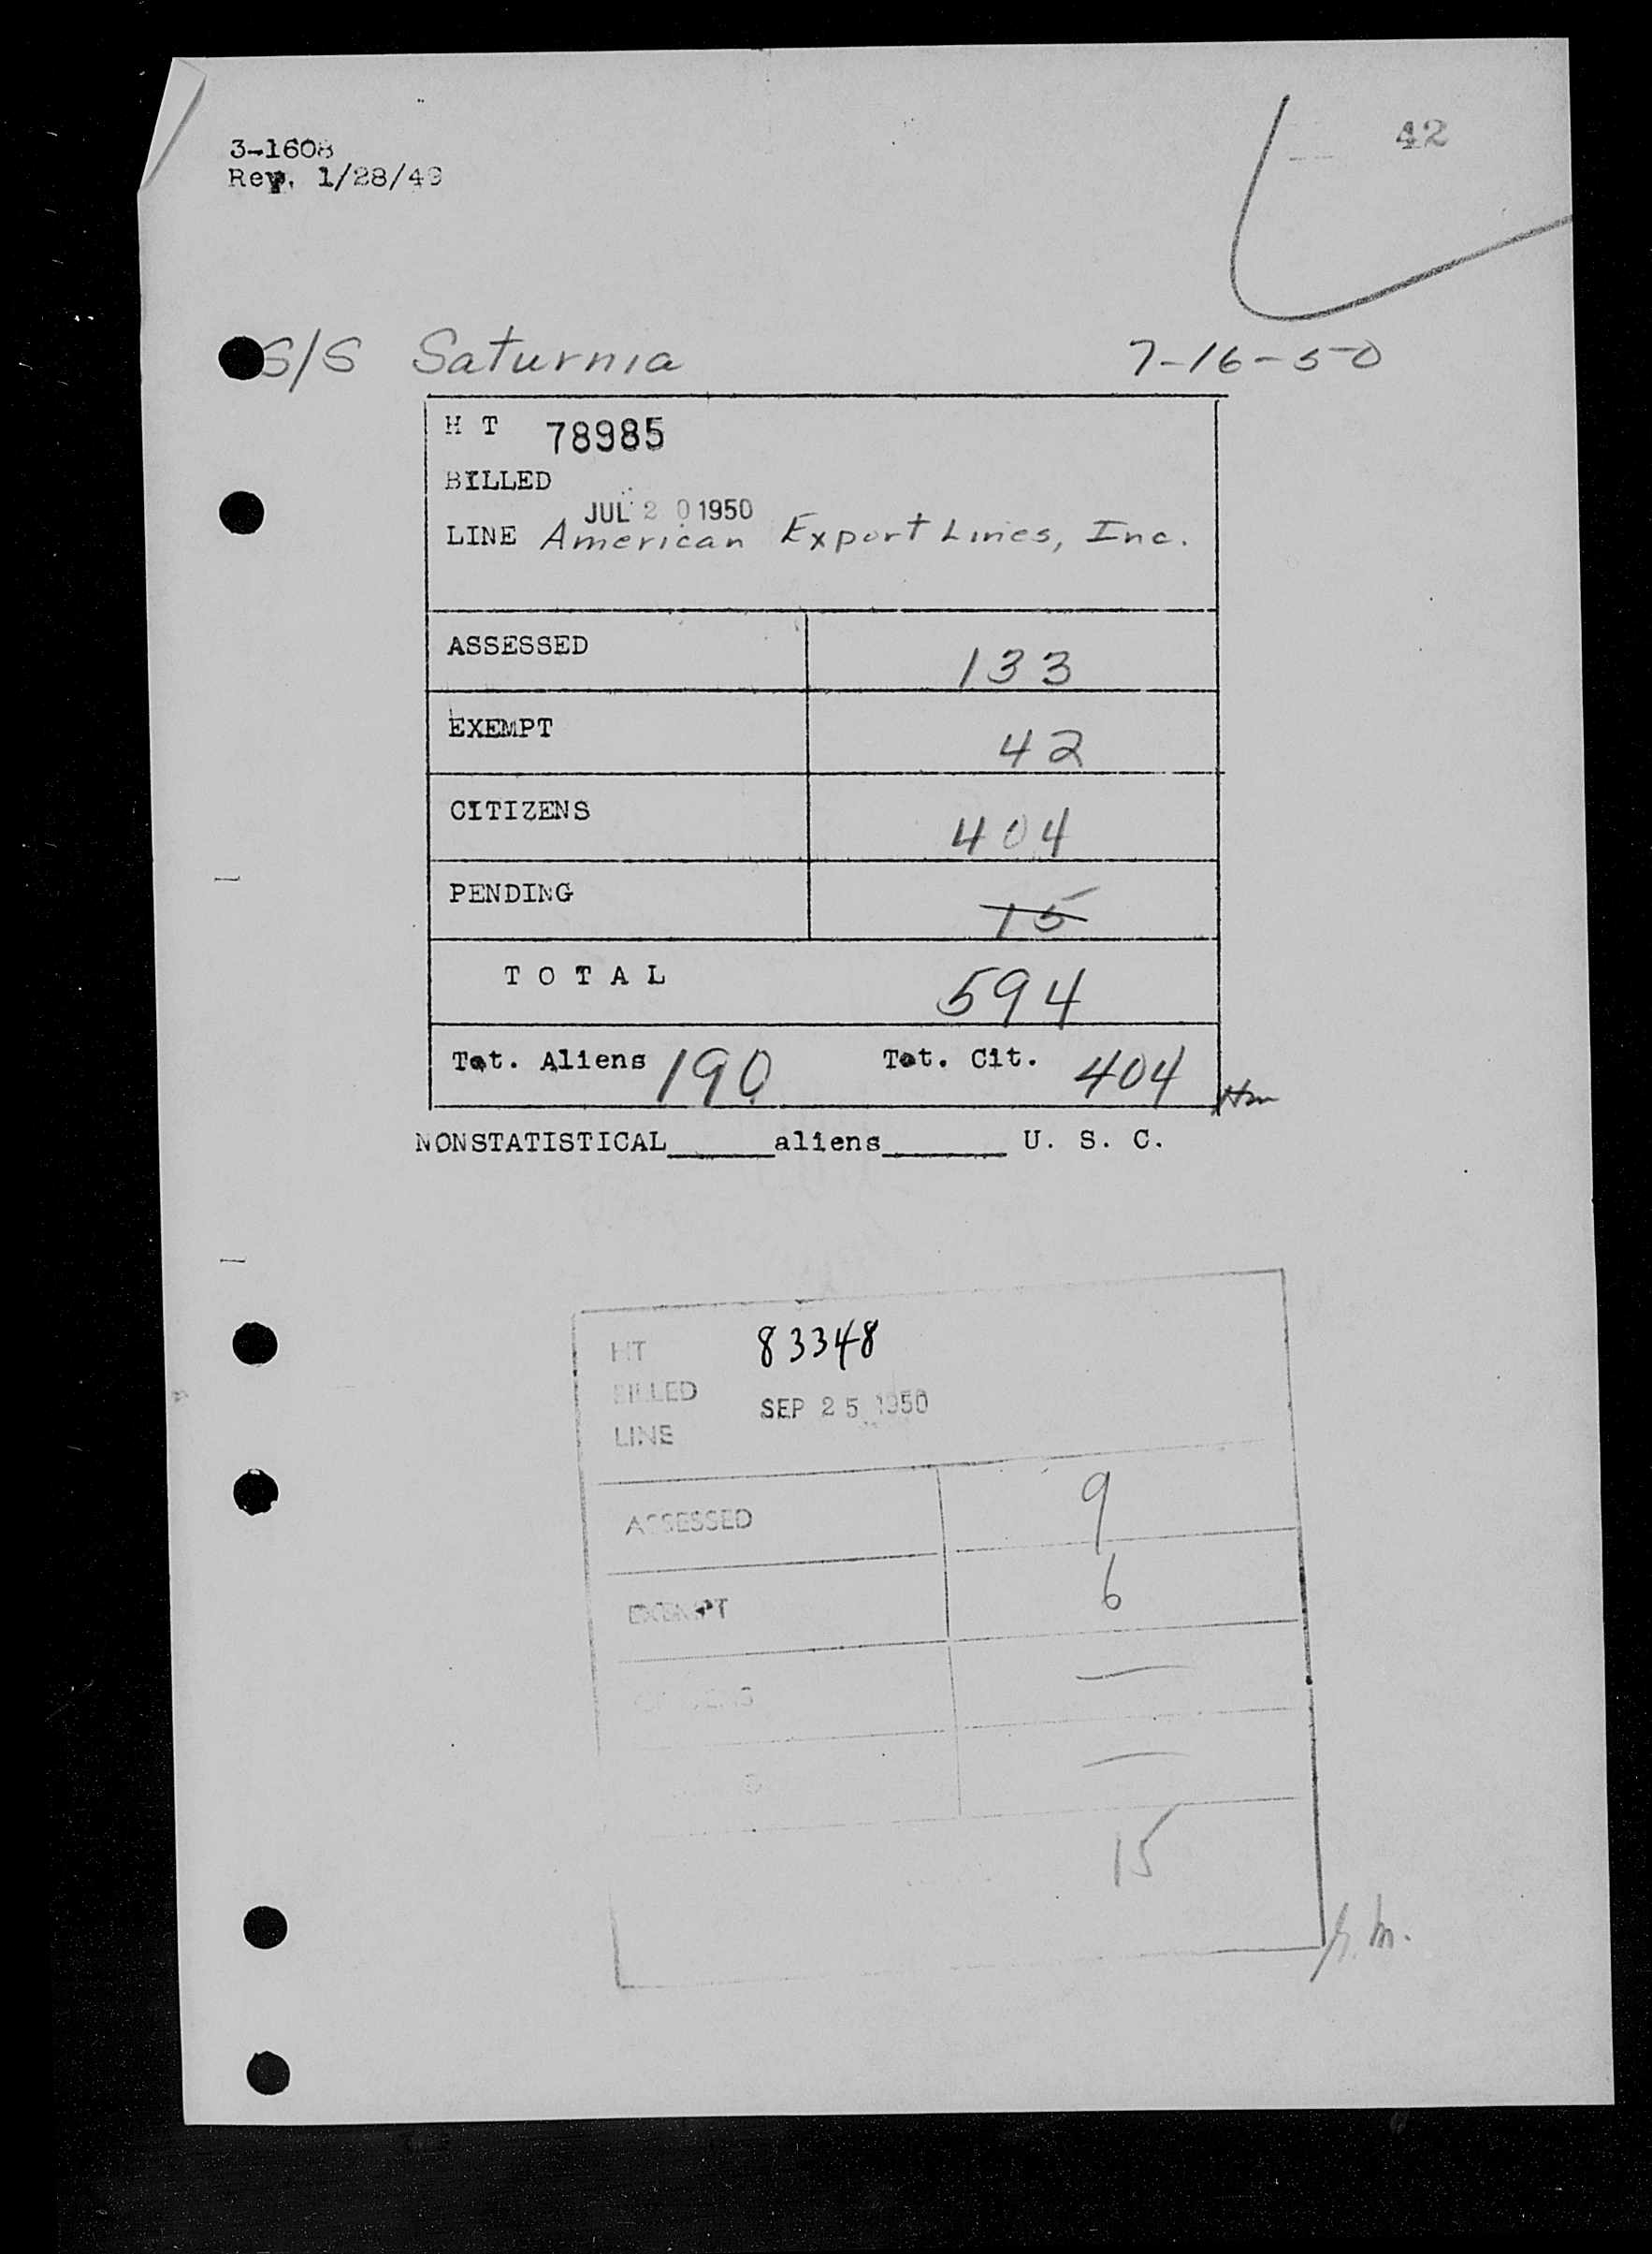 42
3-1608
Rev. 1/28/49
S/S Saturnia 7-16-50
H T 78985
BILLED
JUL 20 1950
LINE American Export Lines, Inc.
ASSESSED 133
EXEMPT 42
CITIZENS 404
PENDING 15
T O T A L 594
Tot. Aliens 190 Tot. Cit. 404
NONSTATISTICAL_____aliens______ U. S. C.
HT 83348
BILLED SEP 25 1950
LINE
ASSESSED 9
EXEMPT 6
—
—
15